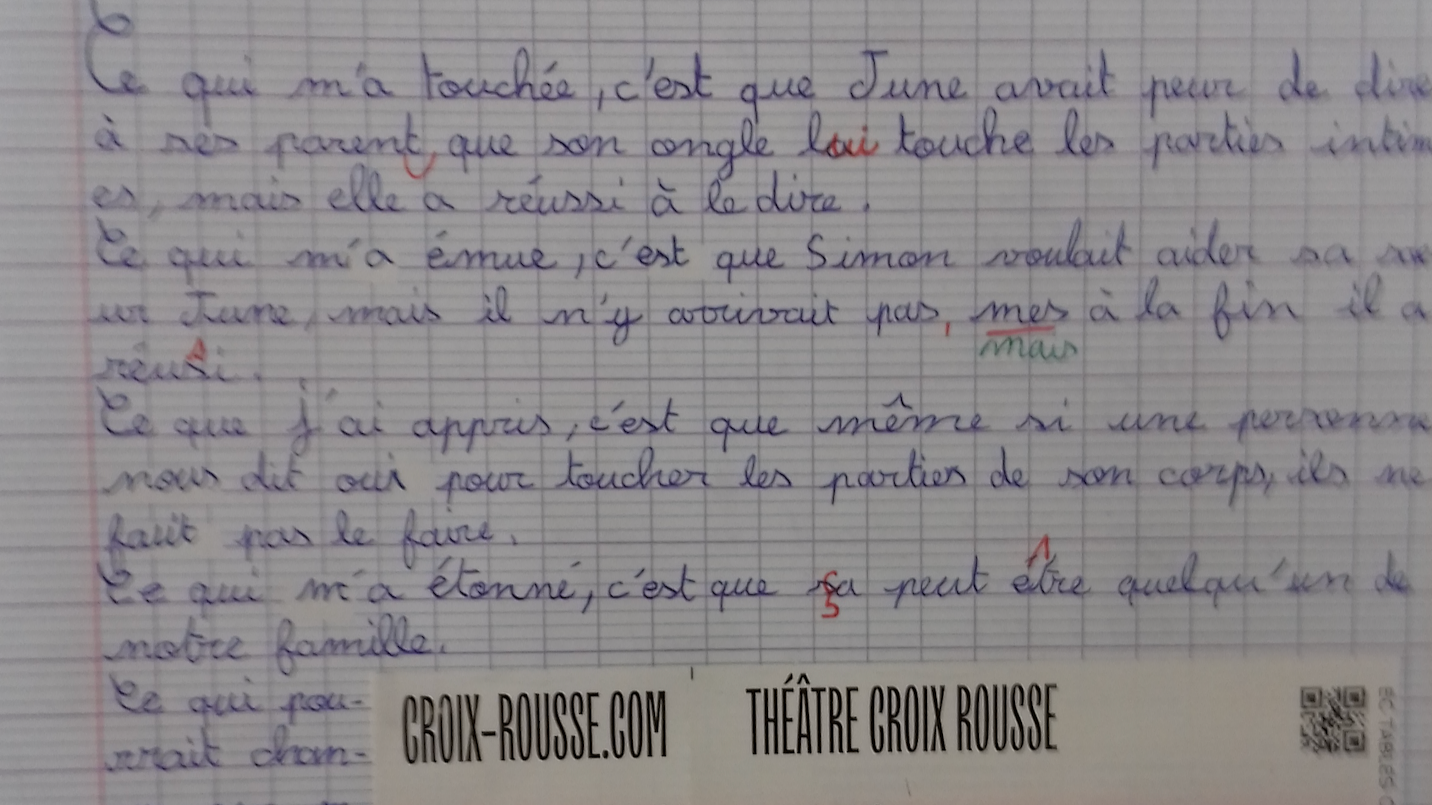 Ce qui m'a touchée, c'est que June avait peur de dire
à ses parent, que son ongle lui touche les parties intim
es, mais elle a réussi à le dire.
Ce qui m'a émue, c'est que Simon voulait aider sa sœ
ur June, mais il n'y arrivait pas, mes à la fin il a
mais
réussi.
Ce que j'ai appris, c'est que même si une personne
nous dit oui pour toucher les parties de son corps, ils ne
faut pas le faire.
Ce qui m'a étonné, c'est que ça peut être quelqu'un de
notre famille.
Ce qui pou-
rrait chan-
CROIX-ROUSSE.COM THÉÂTRE CROIX ROUSSE